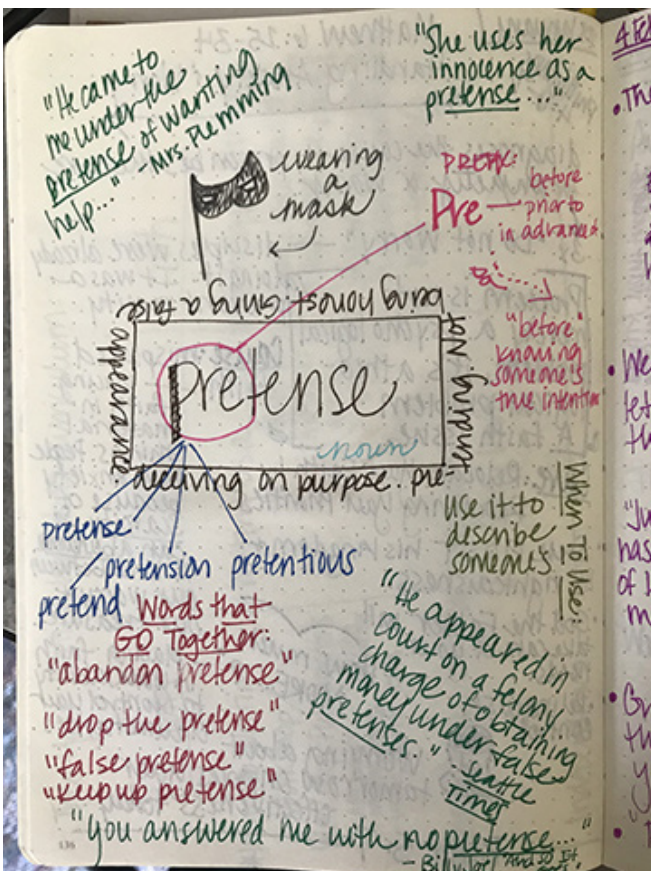 "He came to
me under the
pretense of wanting
help..." - Mrs. Plemming
"She uses her
innocence as a
pretense..."
wearing
a
mask
PREFIX:
Pre — before
prior to
in advance
"before"
knowing
someone's
true intention
being honest. Giving a false
appearance.
pretense
noun
deceiving on purpose. pre-
tending. Not
pretense
pretension pretentious
pretend
When To Use:
use it to
describe
someone's
Words that
GO Together:
"abandon pretense"
"drop the pretense"
"false pretense"
"keep up pretense"
"He appeared in
court on a felony
charge of obtaining
money under false
pretenses."
Seattle
Times
"you answered me with no pretense..."
- Billy Joel And So It
136
"Ju
has
of